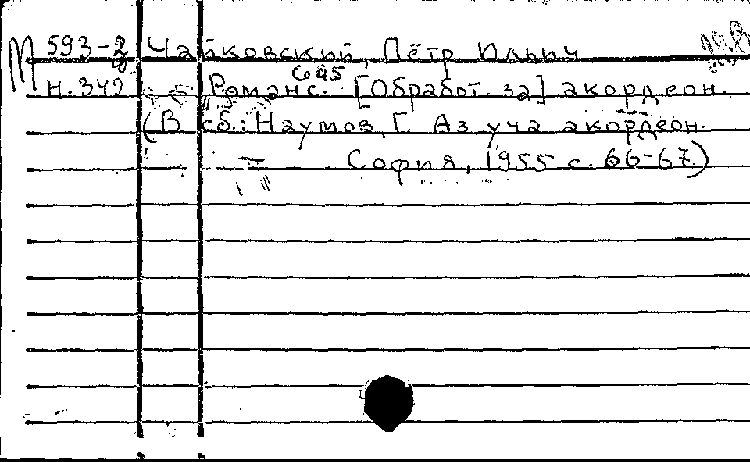 М 593-2 Чайковский, Пётр Ильич
Н. 342 Романс. [Обработ. за] акордеон.
(В сб.: Наумов, Г. Аз уча акордеон.
София, 1955 с. 66-67)